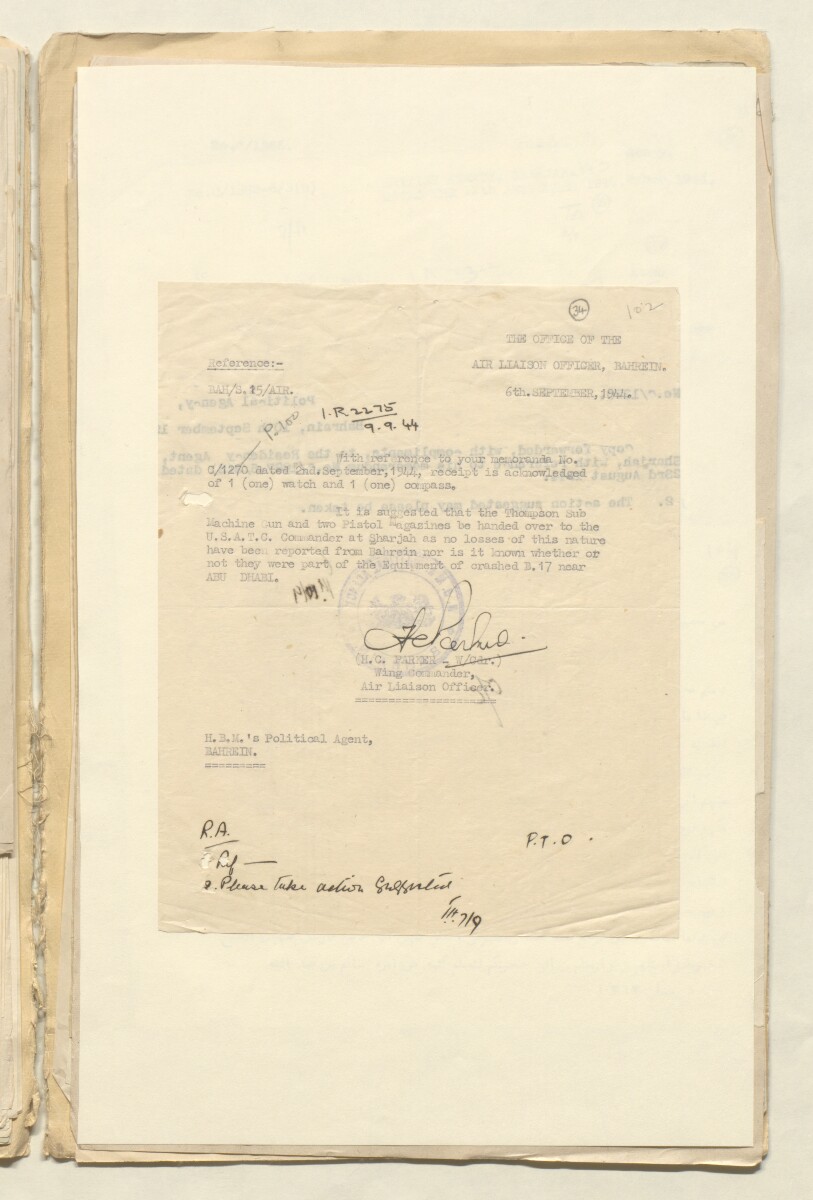 34
102
THE OFFICE OF THE
AIR LIAISON OFFICER, BAHREIN.
6th.SEPTEMBER,1944.
Reference:-
BAH/S.15/AIR.
P.100
I.R 2275
9.9.44
With reference to your memoranda No.
C/1270 dated 2nd.September,1944, receipt is acknowledged
of 1 (one) watch and 1 (one) compass.
It is suggested that the Thompson Sub
Machine Gun and two Pistol Magasines be handed over to the
U.S.A.T.C. Commander at Sharjah as no losses of this nature
have been reported from Bahrein nor is it known whether or
not they were part of the Equipment of crashed B.17 near
ABU DHABI.
(H.C. PARKER - W/Cdr.)
Wing Commander,
Air Liaison Officer.
H.B.M.'s Political Agent,
BAHREIN.
R.A.
P.T.O.
2. Please take action suggested